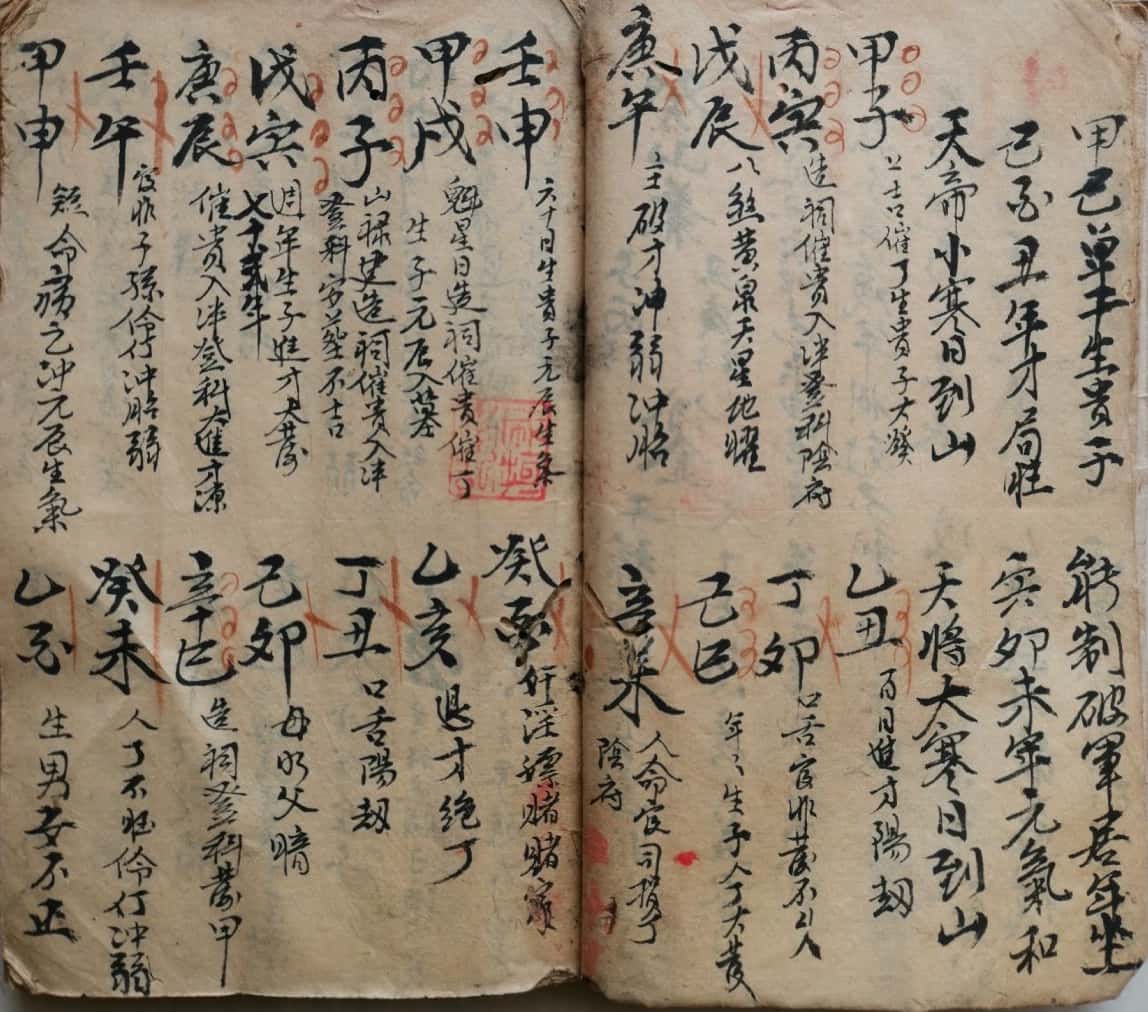 甲己單干生貴子
能制破軍居年坐
己酉丑年才局旺
亥卯未年元氣和
天帝小寒日到山
天將大寒日到山
甲子
上吉催丁生貴子大發
乙丑
百日進才陽刼
丙寅
造祠催貴入泮登科陰府
丁卯
口舌官非
戊辰
八煞黃泉天星地曜
己巳
年々生子人丁大發
庚午
主破才冲弱冲胎
辛未
人命官司損丁
陰府
壬申
六十日生貴子元辰生氣
癸酉
奸淫嫖賭賭家
甲戌
魁星日造祠催貴催丁
生子元辰入墓
乙亥
退才絶丁
丙子
山祿建造祠催貴入泮
登科安葬不吉
丁丑
口舌陽刼
戊寅
週年生子進才大發
己卯
母明父暗
庚辰
催貴入泮登科大進才源
辛巳
造祠登科發甲
壬午
官非子孫伶仃冲胎弱
癸未
人丁不旺伶仃冲弱
甲申
短命病之冲元辰生氣
乙酉
生男女不正